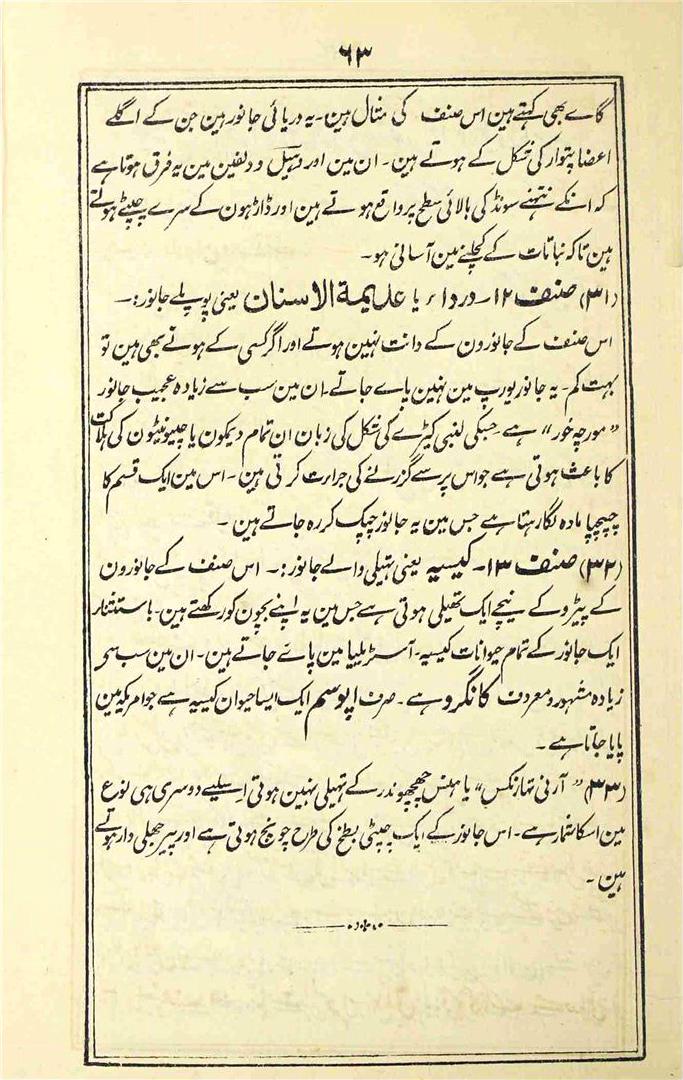 ۶۳
گاے بھی کہتے ہین اس صنف کی مثال ہین۔ یہ دریائی جانور ہین جن کے اگلے
اعضا پتوار کی شکل کے ہوتے ہین۔ ان مین اور وہیل و دلفین مین یہ فرق ہوتا ہے
کہ انکے نتھنے سونڈ کی بالائی سطح پر واقع ہوتے ہین اور ڈاڑھون کے سرے چپٹے ہوتے
ہین تاکہ نباتات کے کچلنے مین آسانی ہو۔
(۳۱) صنف ۱۲۔ درداء یا عدیمة الاسنان یعنی پوپلے جانور:۔
اس صنف کے جانورون کے دانت نہین ہوتے اور اگر کسی کے ہوتے بھی ہین تو
بہت کم۔ یہ جانور یورپ مین نہین پاے جاتے۔ ان مین سب سے زیادہ عجیب جانور
"مورچہ خور" ہے جسکی لنبی کیڑے کی شکل کی زبان ان تمام دیمکون یا چیونٹیون کی ہلاکت
کا باعث ہوتی ہے جو اس پر سے گزرنے کی جراءت کرتی ہین۔ اس مین ایک قسم کا
چپچپا مادہ لگا رہتا ہے جس مین یہ جانور چپک کر رہ جاتے ہین۔
(۳۲) صنف ۱۳۔ کیسیہ یعنی تھیلی والے جانور:۔ اس صنف کے جانورون
کے پیڑو کے نیچے ایک تھیلی ہوتی ہے جس مین یہ اپنے بچون کو رکھتے ہین۔ باستثناء
ایک جانور کے تمام حیوانات کیسیہ۔ آسٹریلیا مین پائے جاتے ہین۔ ان مین سب سے
زیادہ مشہور و معروف کانگرو ہے۔ صرف اپوسم ایک ایسا حیوان کیسیہ ہے جو امریکہ مین
پایا جاتا ہے۔
(۳۳) "آرنی تھارنکس" یا ہنس چھچھوندر کے تھیلی نہین ہوتی اسلیے دوسری ہی نوع
مین اسکا شمار ہے۔ اس جانور کے ایک چپٹی بطخ کی طرح چونچ ہوتی ہے اور پیر جھلی دار ہوتے
ہین۔